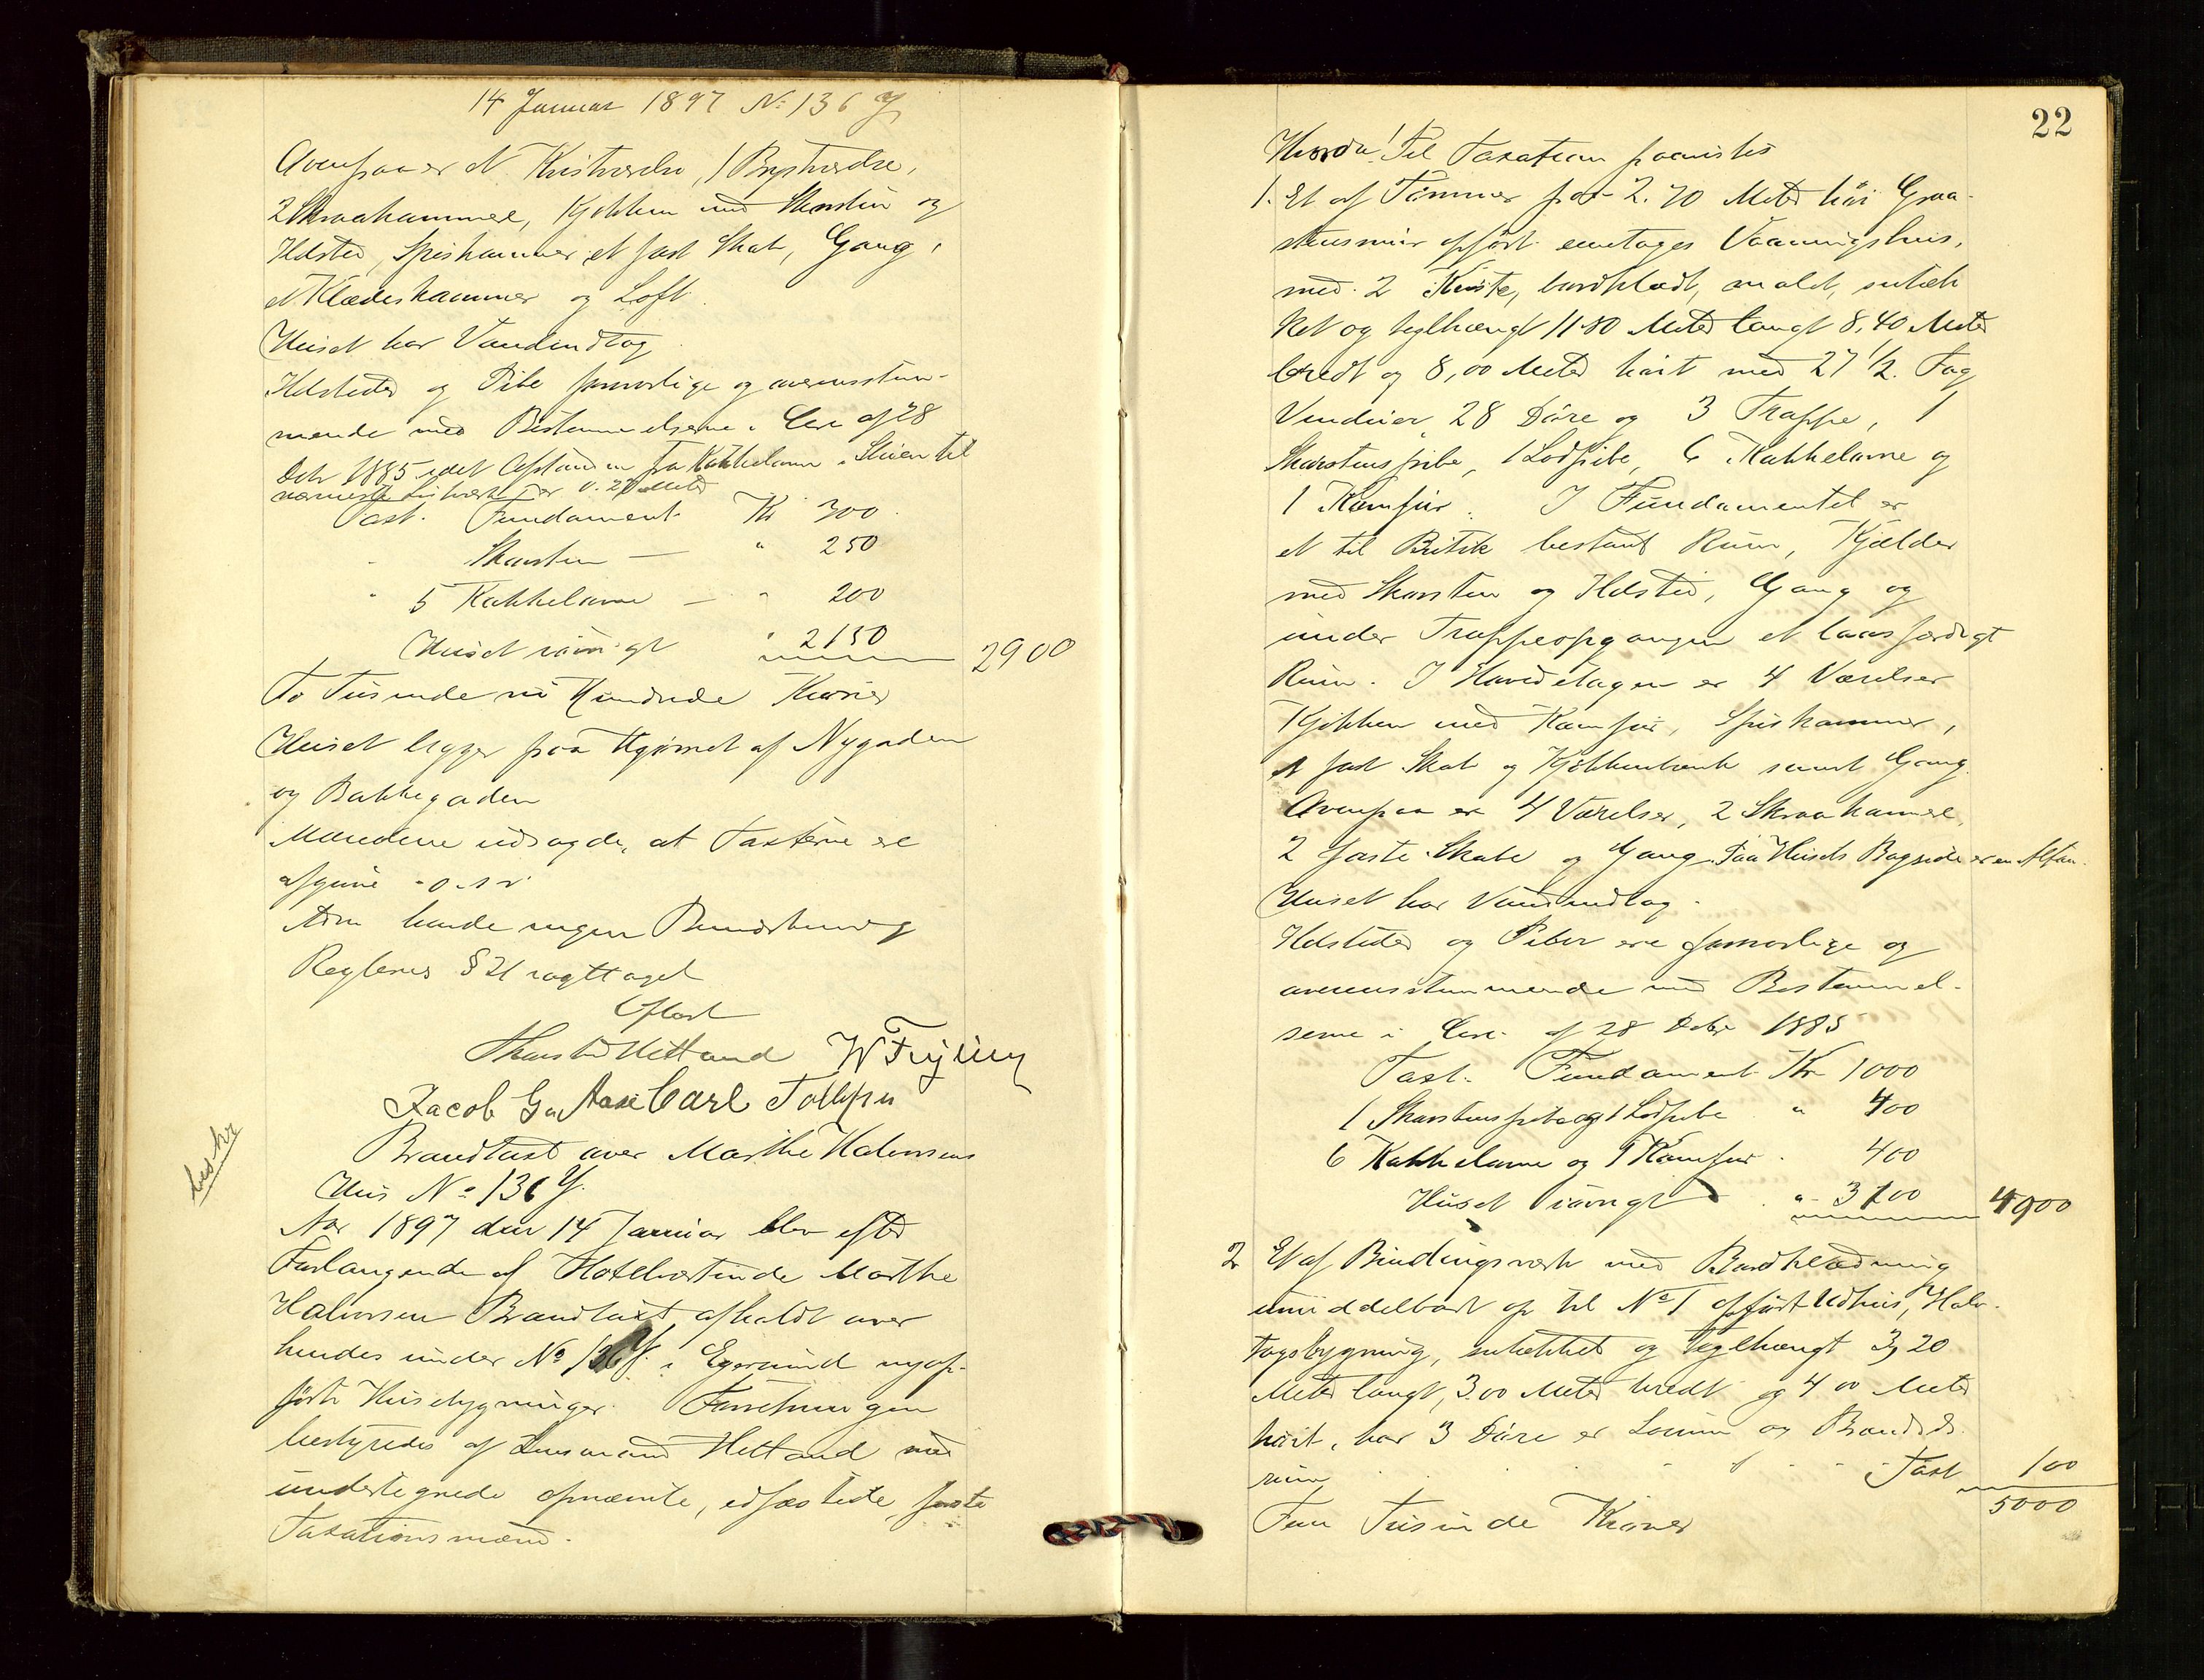 14 Januar 1897 No 136 Y
Ovenpaa er et Kvistværelse, 1 Brystværelse,
2 Skraakammere, Kjøkken med Skorsten og
Ildsted, Spiskammer, et fast Skab, Gang,
et Klædeskammer og Loft.
Huset har Vandindtag
Ildsteder og Pibe forsvarlige og overensstem-
mende med Bestemmelserne i Circ af 28
Octr 1885 idet Afstanden fra Kakkelovn i Stuen til
nærmeste Træværk er 0.27 Meter
Taxt. Fundament Kr 300
" Skorsten — " 250
" 5 Kakkelovne — " 200
Huset iøvrigt " 2150 2900
To Tusinde ni Hundrede Kroner
Huset ligger paa Hjørnet af Nygaden
og Bakkegaden
Mændene udsagde, at Taxterne ere
afgivne o.s.v.
Den havde ingen Bemærkning
Reglernes § 21 iagttaget
Oplæst
Hetland W Feyling
Jacob G. Aase Carl Tollefsen
Brandtaxt over Marthe Halvorsens
Hus No 136 Y.
beskr
Aar 1897 den 14 Januar blev efter
Forlangende af Hotelværtinde Marthe
Halvorsen Brandtaxt afholdt over
hendes under No 136 Y. i Egersund nyop-
førte Husebygninger. Forretningen
bestyredes af Lensmand Hetland med
undertegnede opnævnte, edfæstede, faste
Taxationsmænd.
22
Hvorda! Til Taxation paavistes
1. Et af Tømmer paa 2.70 Meter høi Graa-
stensmur opført enetages Vaaningshus,
med 2 Kviste, bordklædt, malet, sutæk
ket og teglhængt 11.80 Meter langt 8,40 Meter
bredt og 8,00 Meter høit med 27 1/2 Fag
Vinduer, 28 Døre og 3 Trappe, 1
Skorstenspibe, 1 Lodpibe, 6 Kakkelovne og
1 Komfur. I Fundamentet er
et til Butik bestemt Rum, Kjælder
med Skorsten og Ildsted, Gang og
under Trappeopgangen et laasfærdigt
Rum. I Hovedetagen er 4 Værelser
Kjøkken med Komfur, Spiskammer,
et fast Skab og Kjøkkenbænk samt Gang.
Ovenpaa er 4 Værelser, 2 Skraakammere,
2 faste Skabe og Gang. Paa Husets Bagside er en Altan.
Huset har Vandindtag.
Ildsteder og Piber ere forsvarlige og
overensstemmende med Bestemmel-
serne i Circ. af 28 Octbr 1885
Taxt. Fundament Kr 1000
1 Skorstenspibe og 1 Lodpibe " 400
6 Kakkelovne og 1 Komfur " 400
Huset iøvrigt " 3100 4900
2 Et af Bindingsværk med Bordklædning
umiddelbart op til No 1 opført Udhus, Halv-
tagsbygning, sutækket og teglhængt 3,20
Meter langt, 3.00 Meter bredt og 4 00 Meter
høit, har 3 Døre er Locum og Brænde-
rum Taxt 100
5000
Fem Tusinde Kroner